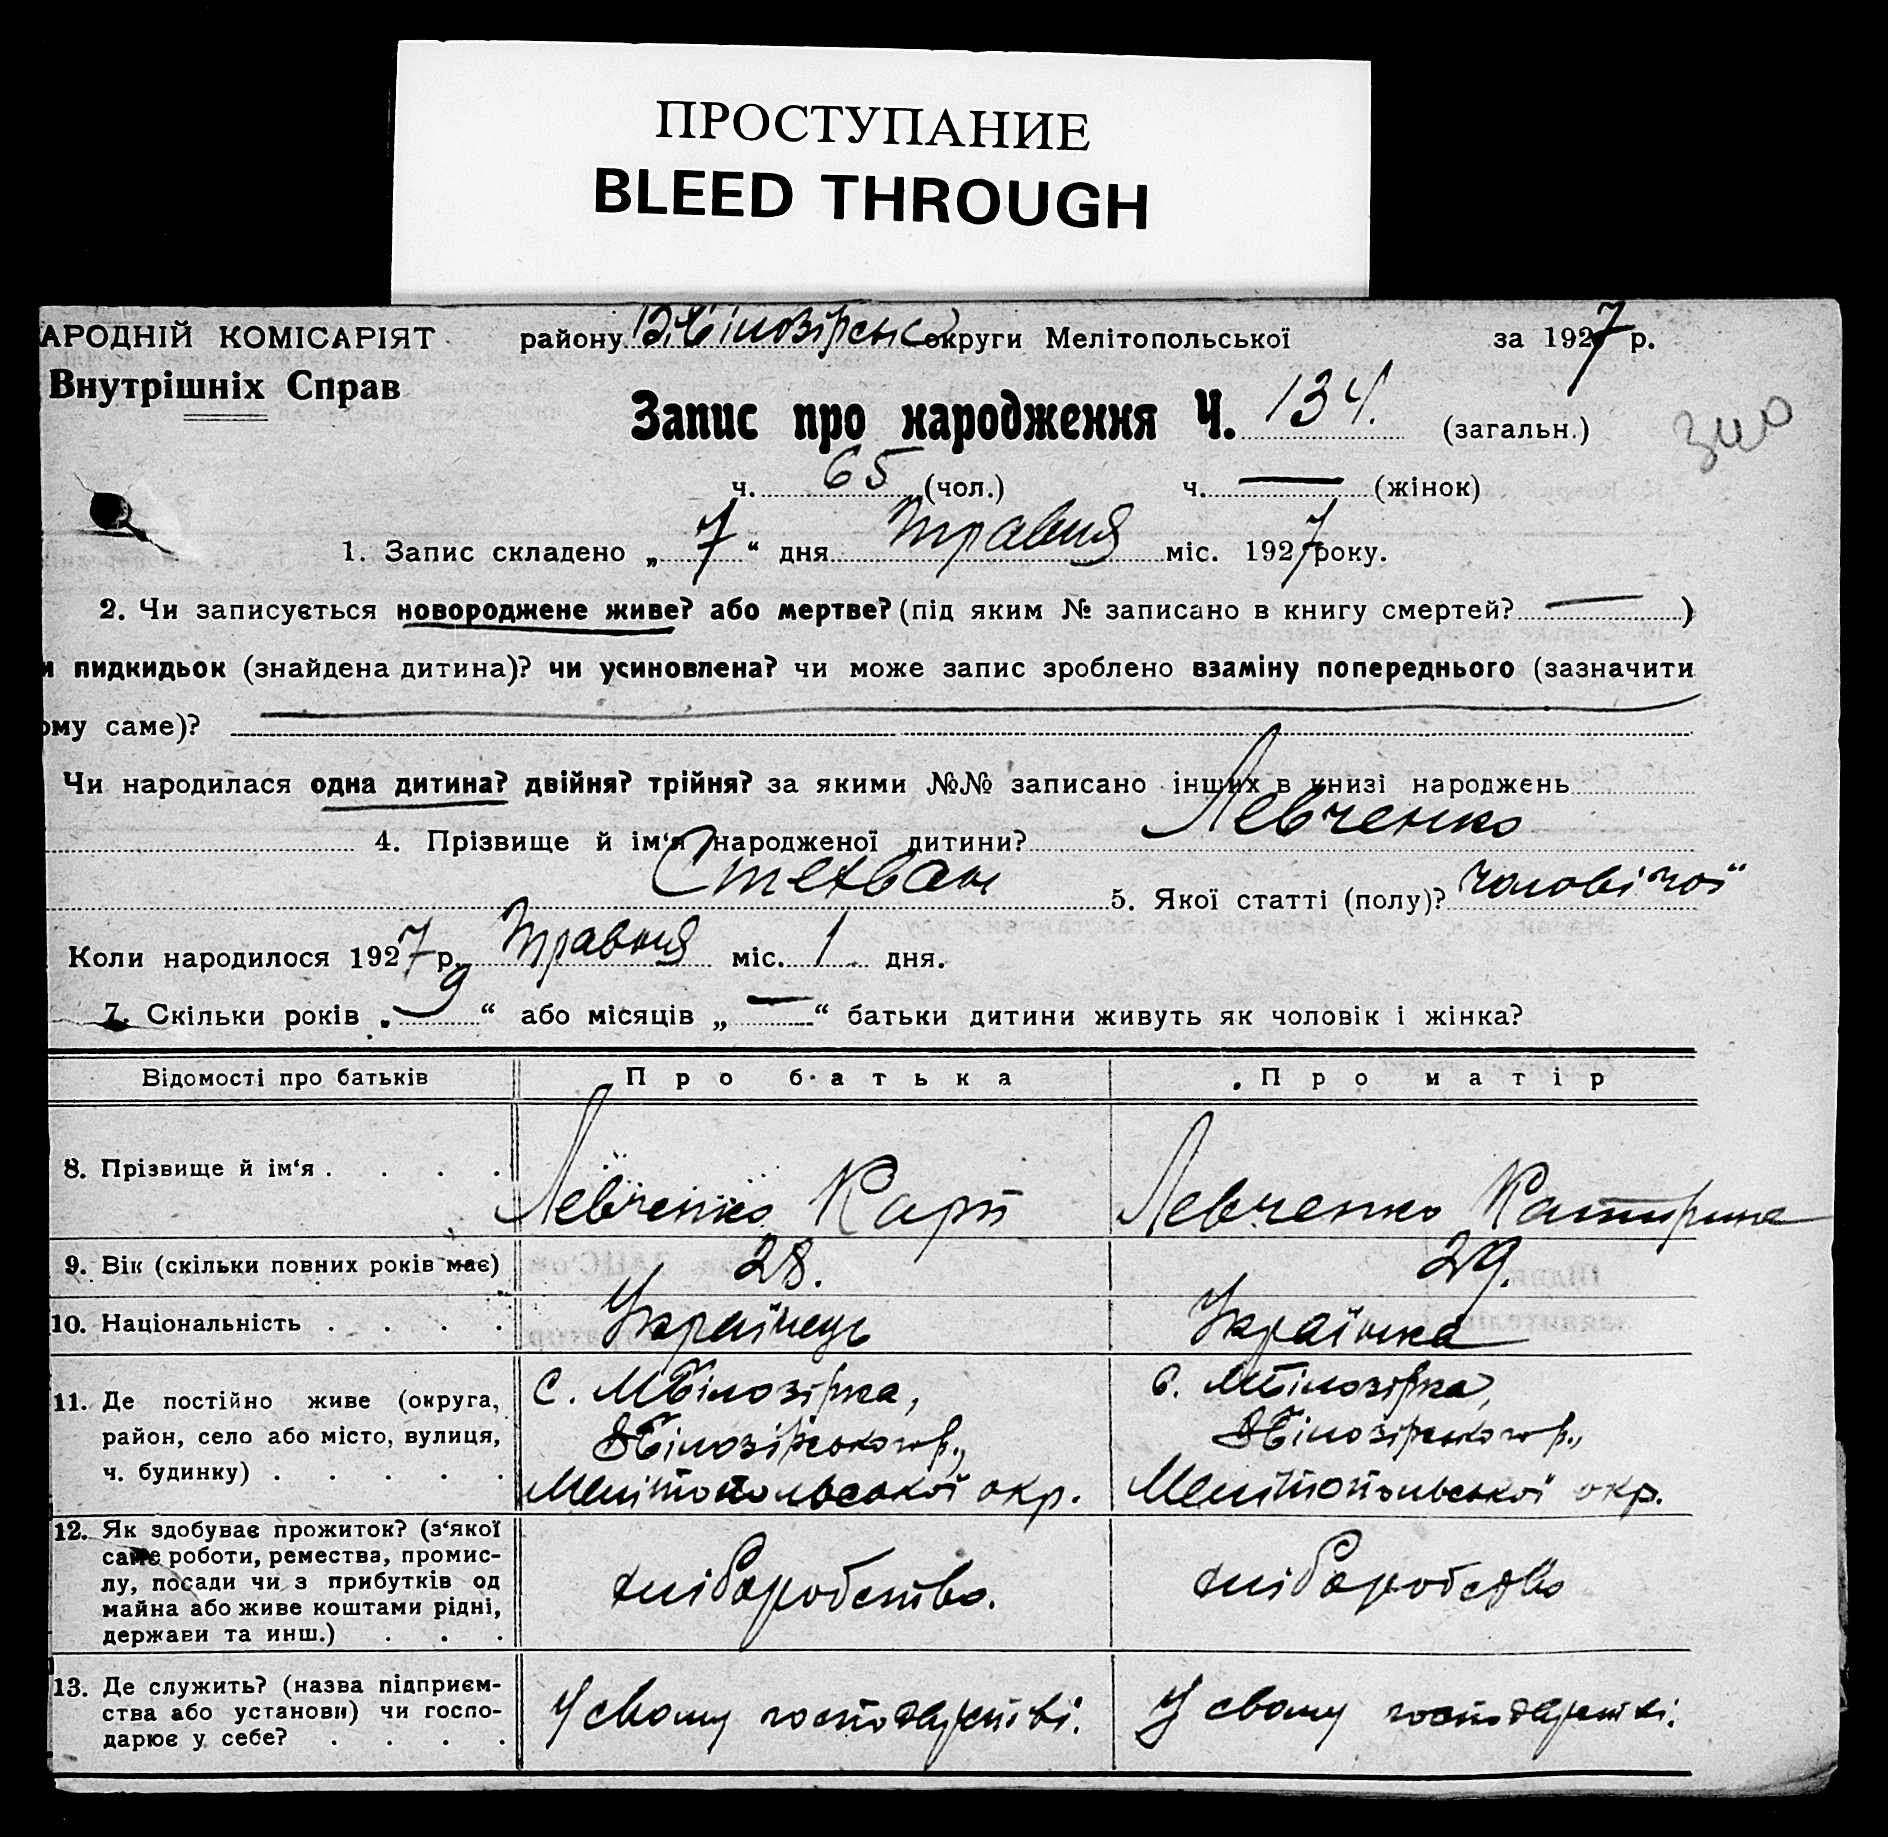 ПРОСТУПАНИЕ
BLEED THROUGH
АРОДНІЙ КОМІСАРІЯТ району В.Білозірськ округи Мелітопольської за 1927 р.
Внутрішніх Справ
Запис про народження Ч. 134. (загальн.)
340
ч. 65 (чол.) ч. — (жінок)
1. Запис складено „ 7 “ дня травня міс. 1927 року.
2. Чи записується новороджене живе? або мертве? (під яким № записано в книгу смертей? — )
и пидкидьок (знайдена дитина)? чи усиновлена? чи може запис зроблено взаміну попереднього (зазначити
ому саме)?
Чи народилася одна дитина? двійня? трійня? за якими №№ записано інших в книзі народжень
4. Прізвище й ім‘я народженої дитини? Левченко
Стехван 5. Якої статті (полу)? чоловічої
Коли народилося 1927 р. травня міс. 1 дня.
7. Скільки років „ 9 “ або місяців „ — “ батьки дитини живуть як чоловік і жінка?
Відомості про батьків Про батька Про матір
8. Прізвище й ім‘я . . . . Левченко Карп Левченко Катирина
9. Вік (скільки повних років має) 28. 29.
10. Національність . . . . Українець Українка
11. Де постійно живе (округа, с. МБілозірка, с. МБілозірка,
район, село або місто, вулиця, ВБілозірського р., ВБілозірського р.,
ч. будинку) . . . . . Мелітопольської окр. Мелітопольської окр.
12. Як здобуває прожиток? (з‘якої
саме роботи, ремества, промис-
лу, посади чи з прибутків од хліборобство. хліборобство
майна або живе коштами рідні,
держави та инш.) . . .
13. Де служить? (назва підприєм-
ства або установи) чи госпо- У свому господарстві. У свому господарстві.
дарює у себе? . . . .